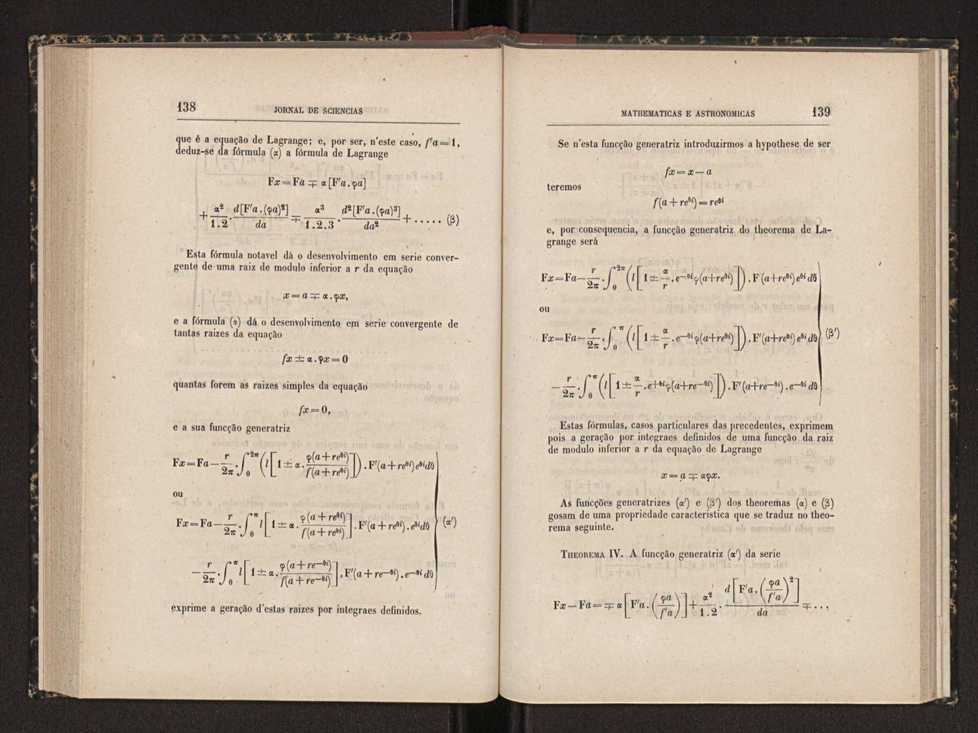 138 JORNAL DE SCIENCIAS
que é a equação de Lagrange; e, por ser, n'este caso, f'a = 1,
deduz-se da fórmula (α) a fórmula de Lagrange
Fx = Fa ∓ α [F'a . φa]
+ α²/1.2 . d[F'a.(φa)²]/da ∓ α³/1.2.3 . d²[F'a.(φa)³]/da² + ..... (β)
Esta fórmula notavel dá o desenvolvimento em serie conver-
gente de uma raiz de modulo inferior a r da equação
x = a ∓ α . φx,
e a fórmula (α) dá o desenvolvimento em serie convergente de
tantas raizes da equação
fx ± α . φx = 0
quantas forem as raizes simples da equação
fx = 0,
e a sua funcção generatriz
Fx = Fa − r/2π . ∫₀^{+2π} (l[1 ± α . φ(a + re^{θi})/f(a + re^{θi})]) . F'(a + re^{θi}) e^{θi} dθ
ou
Fx = Fa − r/2π . ∫₀^{+π} l[1 ± α . φ(a + re^{θi})/f(a + re^{θi})] . F'(a + re^{θi}) . e^{θi} dθ (α')
− r/2π . ∫₀^{+π} l[1 ± α . φ(a + re^{−θi})/f(a + re^{−θi})] . F'(a + re^{−θi}) . e^{−θi} dθ
exprime a geração d'estas raizes por integraes definidos.
MATHEMATICAS E ASTRONOMICAS 139
Se n'esta funcção generatriz introduzirmos a hypothese de ser
fx = x − a
teremos
f(a + re^{θi}) = re^{θi}
e, por consequencia, a funcção generatriz do theorema de La-
grange será
Fx = Fa − r/2π . ∫₀^{+2π} (l[1 ± α/r . e^{−θi} φ(a + re^{θi})]) . F'(a + re^{θi}) e^{θi} dθ
ou
Fx = Fa − r/2π . ∫₀^{+π} (l[1 ± α/r . e^{−θi} φ(a + re^{θi})]) . F'(a + re^{θi}) e^{θi} dθ (β')
− r/2π . ∫₀^{+π} (l[1 ± α/r . e^{+θi} φ(a + re^{−θi})]) . F'(a + re^{−θi}) . e^{−θi} dθ
Estas fórmulas, casos particulares das precedentes, exprimem
pois a geração por integraes definidos de uma funcção da raiz
de modulo inferior a r da equação de Lagrange
x = a ∓ αφx.
As funcções generatrizes (α') e (β') dos theoremas (α) e (β)
gosam de uma propriedade caracteristica que se traduz no theo-
rema seguinte.
THEOREMA IV. A funcção generatriz (α') da serie
Fx − Fa = ∓ α [F'a . (φa/f'a)] + α²/1.2 . d[F'a . (φa/f'a)²]/da ∓ ...,